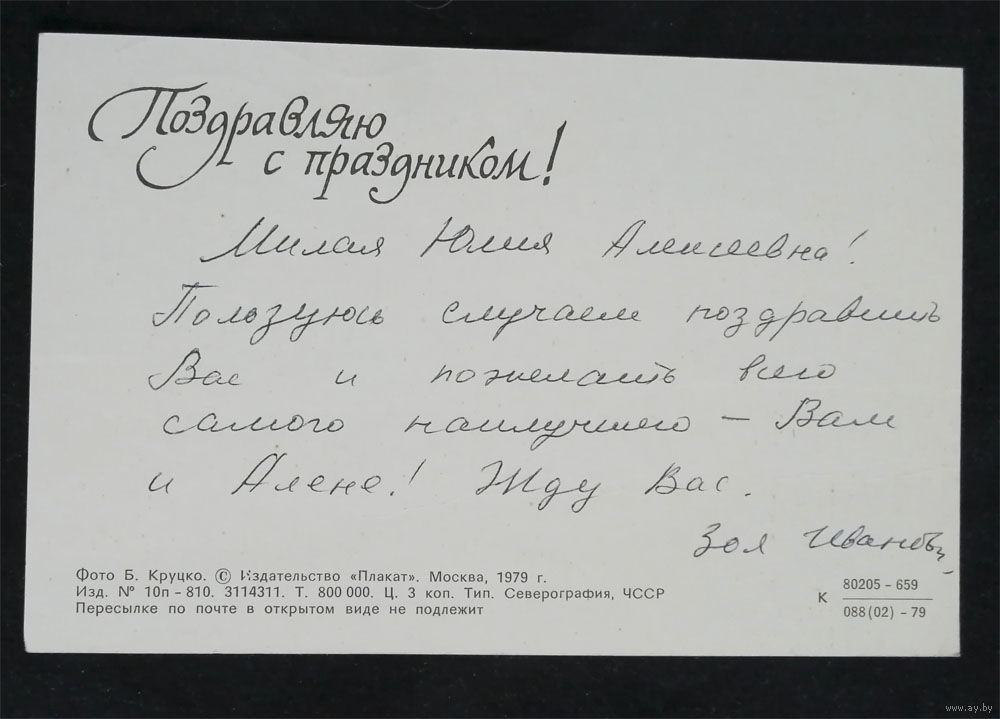 Поздравляю
с праздником!
Милая Юлия Алексеевна!
Пользуюсь случаем поздравить
Вас и пожелать всего
самого наилучшего – Вам
и Алене! Жду Вас.
Зоя
Фото Б. Круцко. © Издательство «Плакат». Москва, 1979 г.
Изд. № 10п – 810. 3114311. Т. 800 000. Ц. 3 коп. Тип. Северография, ЧССР
Пересылке по почте в открытом виде не подлежит
К 80205 – 659
088(02) – 79
www.ay.by